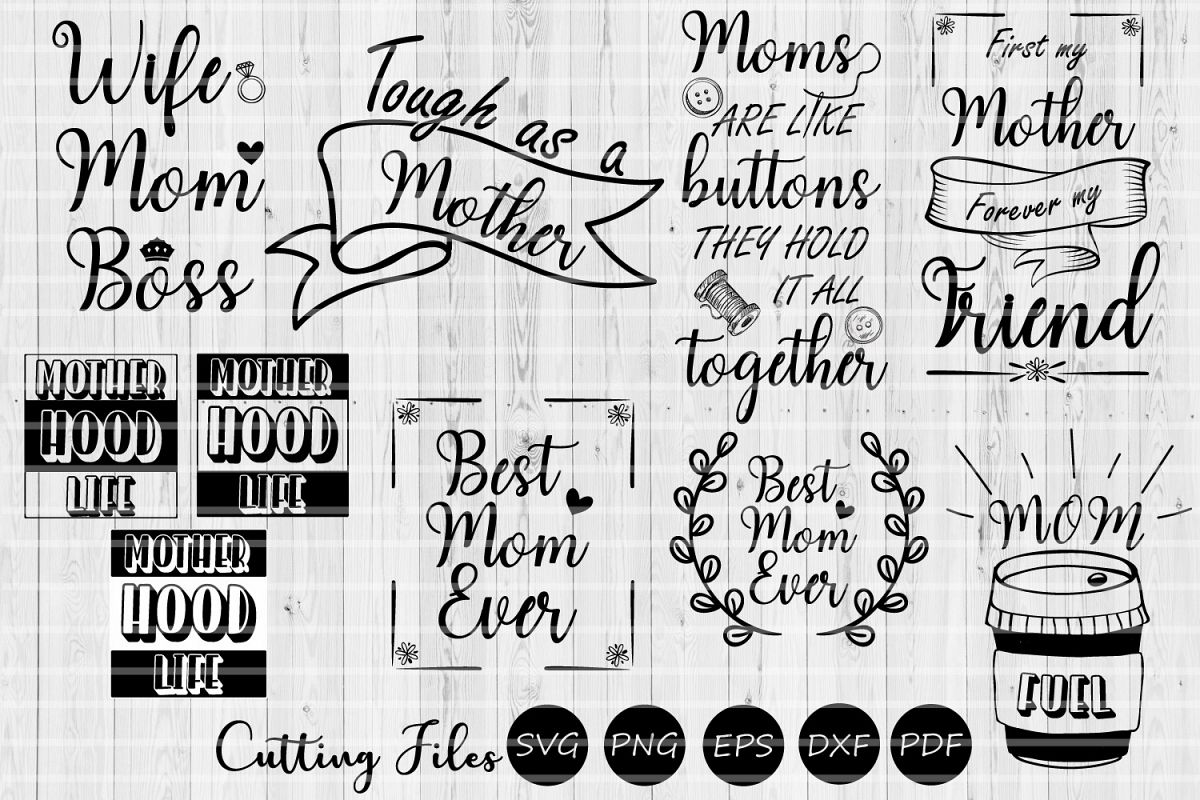 Wife
Mom
Boss
Tough as a
Mother
Moms
ARE LIKE
buttons
THEY HOLD
IT ALL
together
First my
Mother
Forever my
Friend
MOTHER
HOOD
LIFE
MOTHER
HOOD
LIFE
MOTHER
HOOD
LIFE
Best
Mom
Ever
Best
Mom
Ever
MOM
FUEL
Cutting Files
SVG
PNG
EPS
DXF
PDF